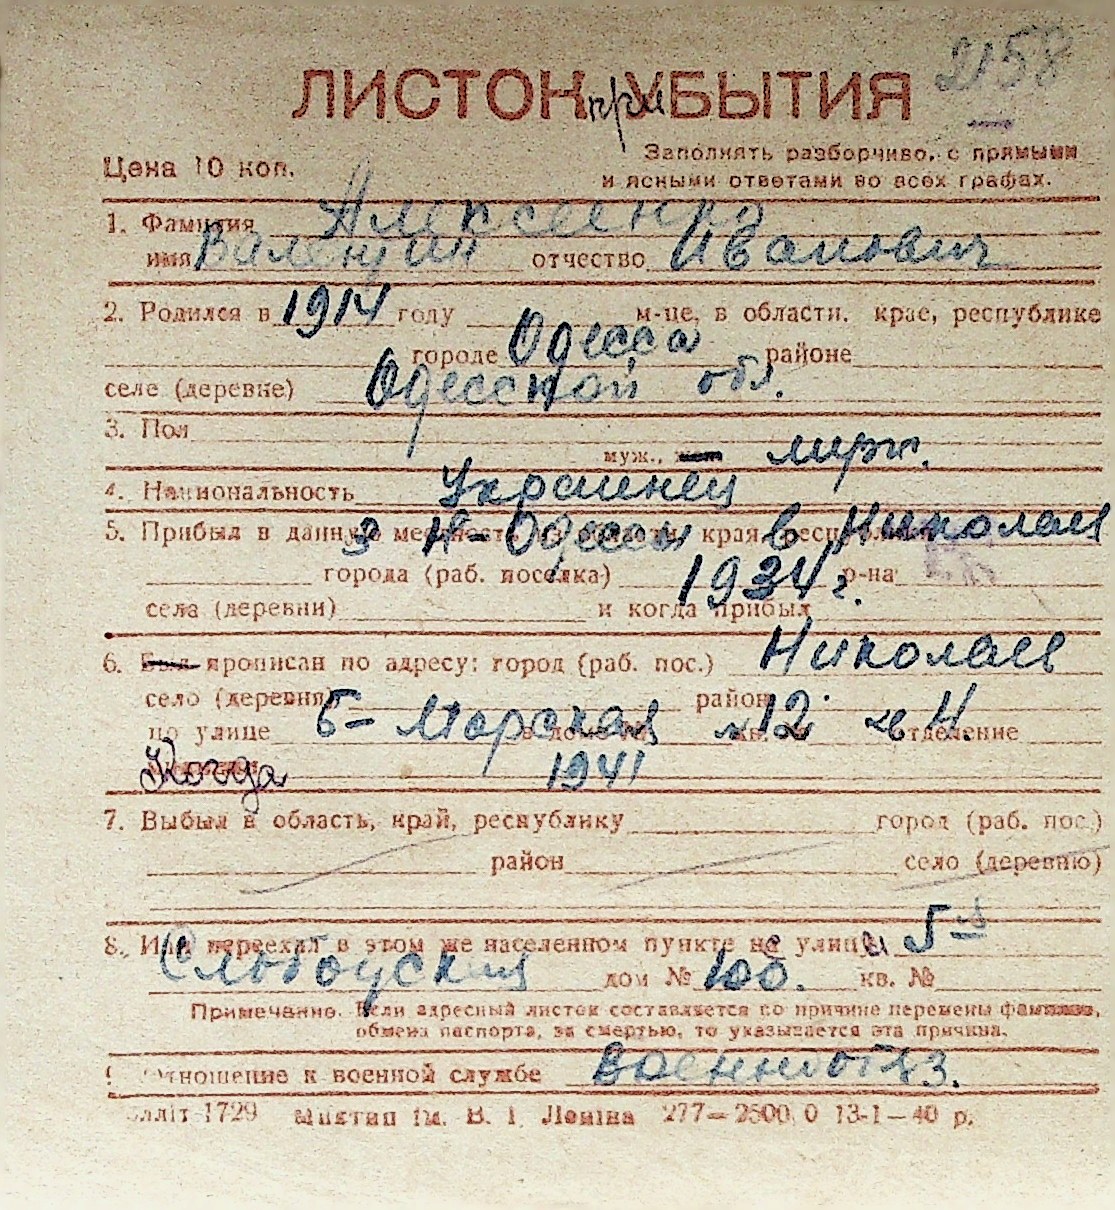 2158
ЛИСТОК при УБЫТИЯ
Цена 10 коп.
Заполнять разборчиво, с прямыми
и ясными ответами во всех графах.
1. Фамилия Алексеенко
имя Валентин отчество Иванович
2. Родился в 1914 году м-це, в области, крае, республике
городе Одесса районе
селе (деревне) Одесской обл.
3. Пол
муж., жен
4. Национальность Украинец
5. Прибыл в данную местность из области, края, республики З Н-Одессы в Николаев
города (раб. поселка) 1934 г. р-на
села (деревни) и когда прибыл
6. Был прописан по адресу: город (раб. пос.) Николаев
село (деревня) район
по улице Б-Морская 12 кв. 4 отделение
Когда 1941
7. Выбыл в область, край, республику город (раб. пос.)
район село (деревню)
8. Или переехал в этом же населенном пункте на улицу 5-я
Слободская дом № 100. кв. №
Примечание. Если адресный листок составляется по причине перемены фамилии,
обмена паспорта, за смертью, то указывается эта причина.
отношение к военной службе Военнообяз.
1729 Миктип ім. В. І. Леніна 277—2500.0 13-1—40 р.